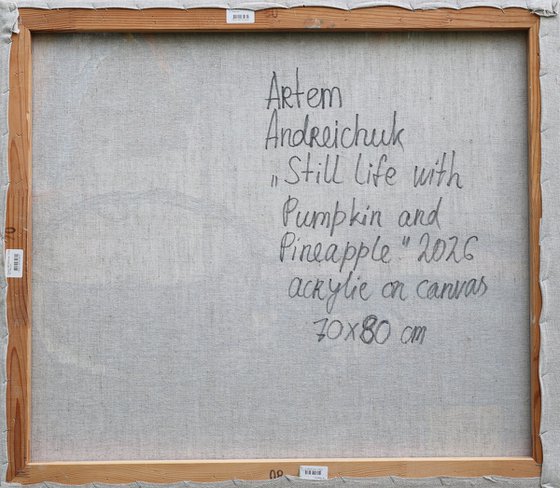 Artem
Andreichuk
„Still life with
Pumpkin and
Pineapple" 2026
acrylic on canvas
70x80 cm
80
70
80